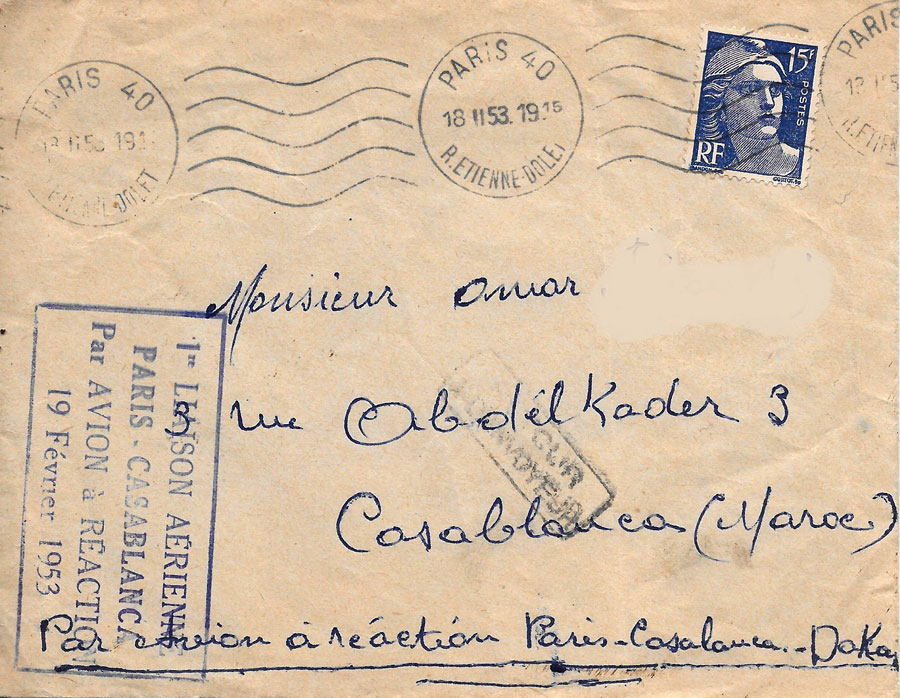 PARIS 40
18 II 53 19 15
R. ETIENNE-DOLET
PARIS 40
18 II 53. 19 15
R. ETIENNE-DOLET
15F
POSTES
RF
PARIS
R. ETIENNE
Monsieur Omar
rue Abdélkader 3
Casablanca (Maroc)
1re LIAISON AÉRIENNE
PARIS - CASABLANCA
Par AVION à RÉACTION
19 Février 1953
Par avion à réaction Paris-Casablanca-Dakar